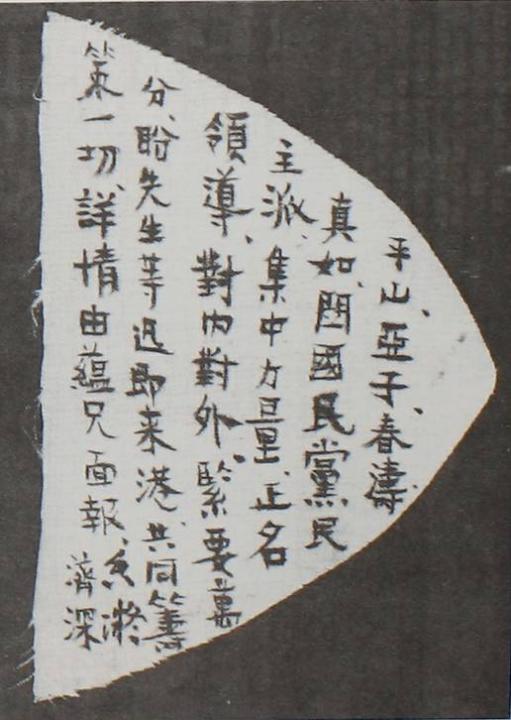 平山、亞子、春濤、
真如、閏國民黨民
主派、集中力量、正名
領導、對內對外、緊要萬
分、盼先生等迅即来港、共同籌
策一切、詳情由蘊兄面報、
香凝
濟深